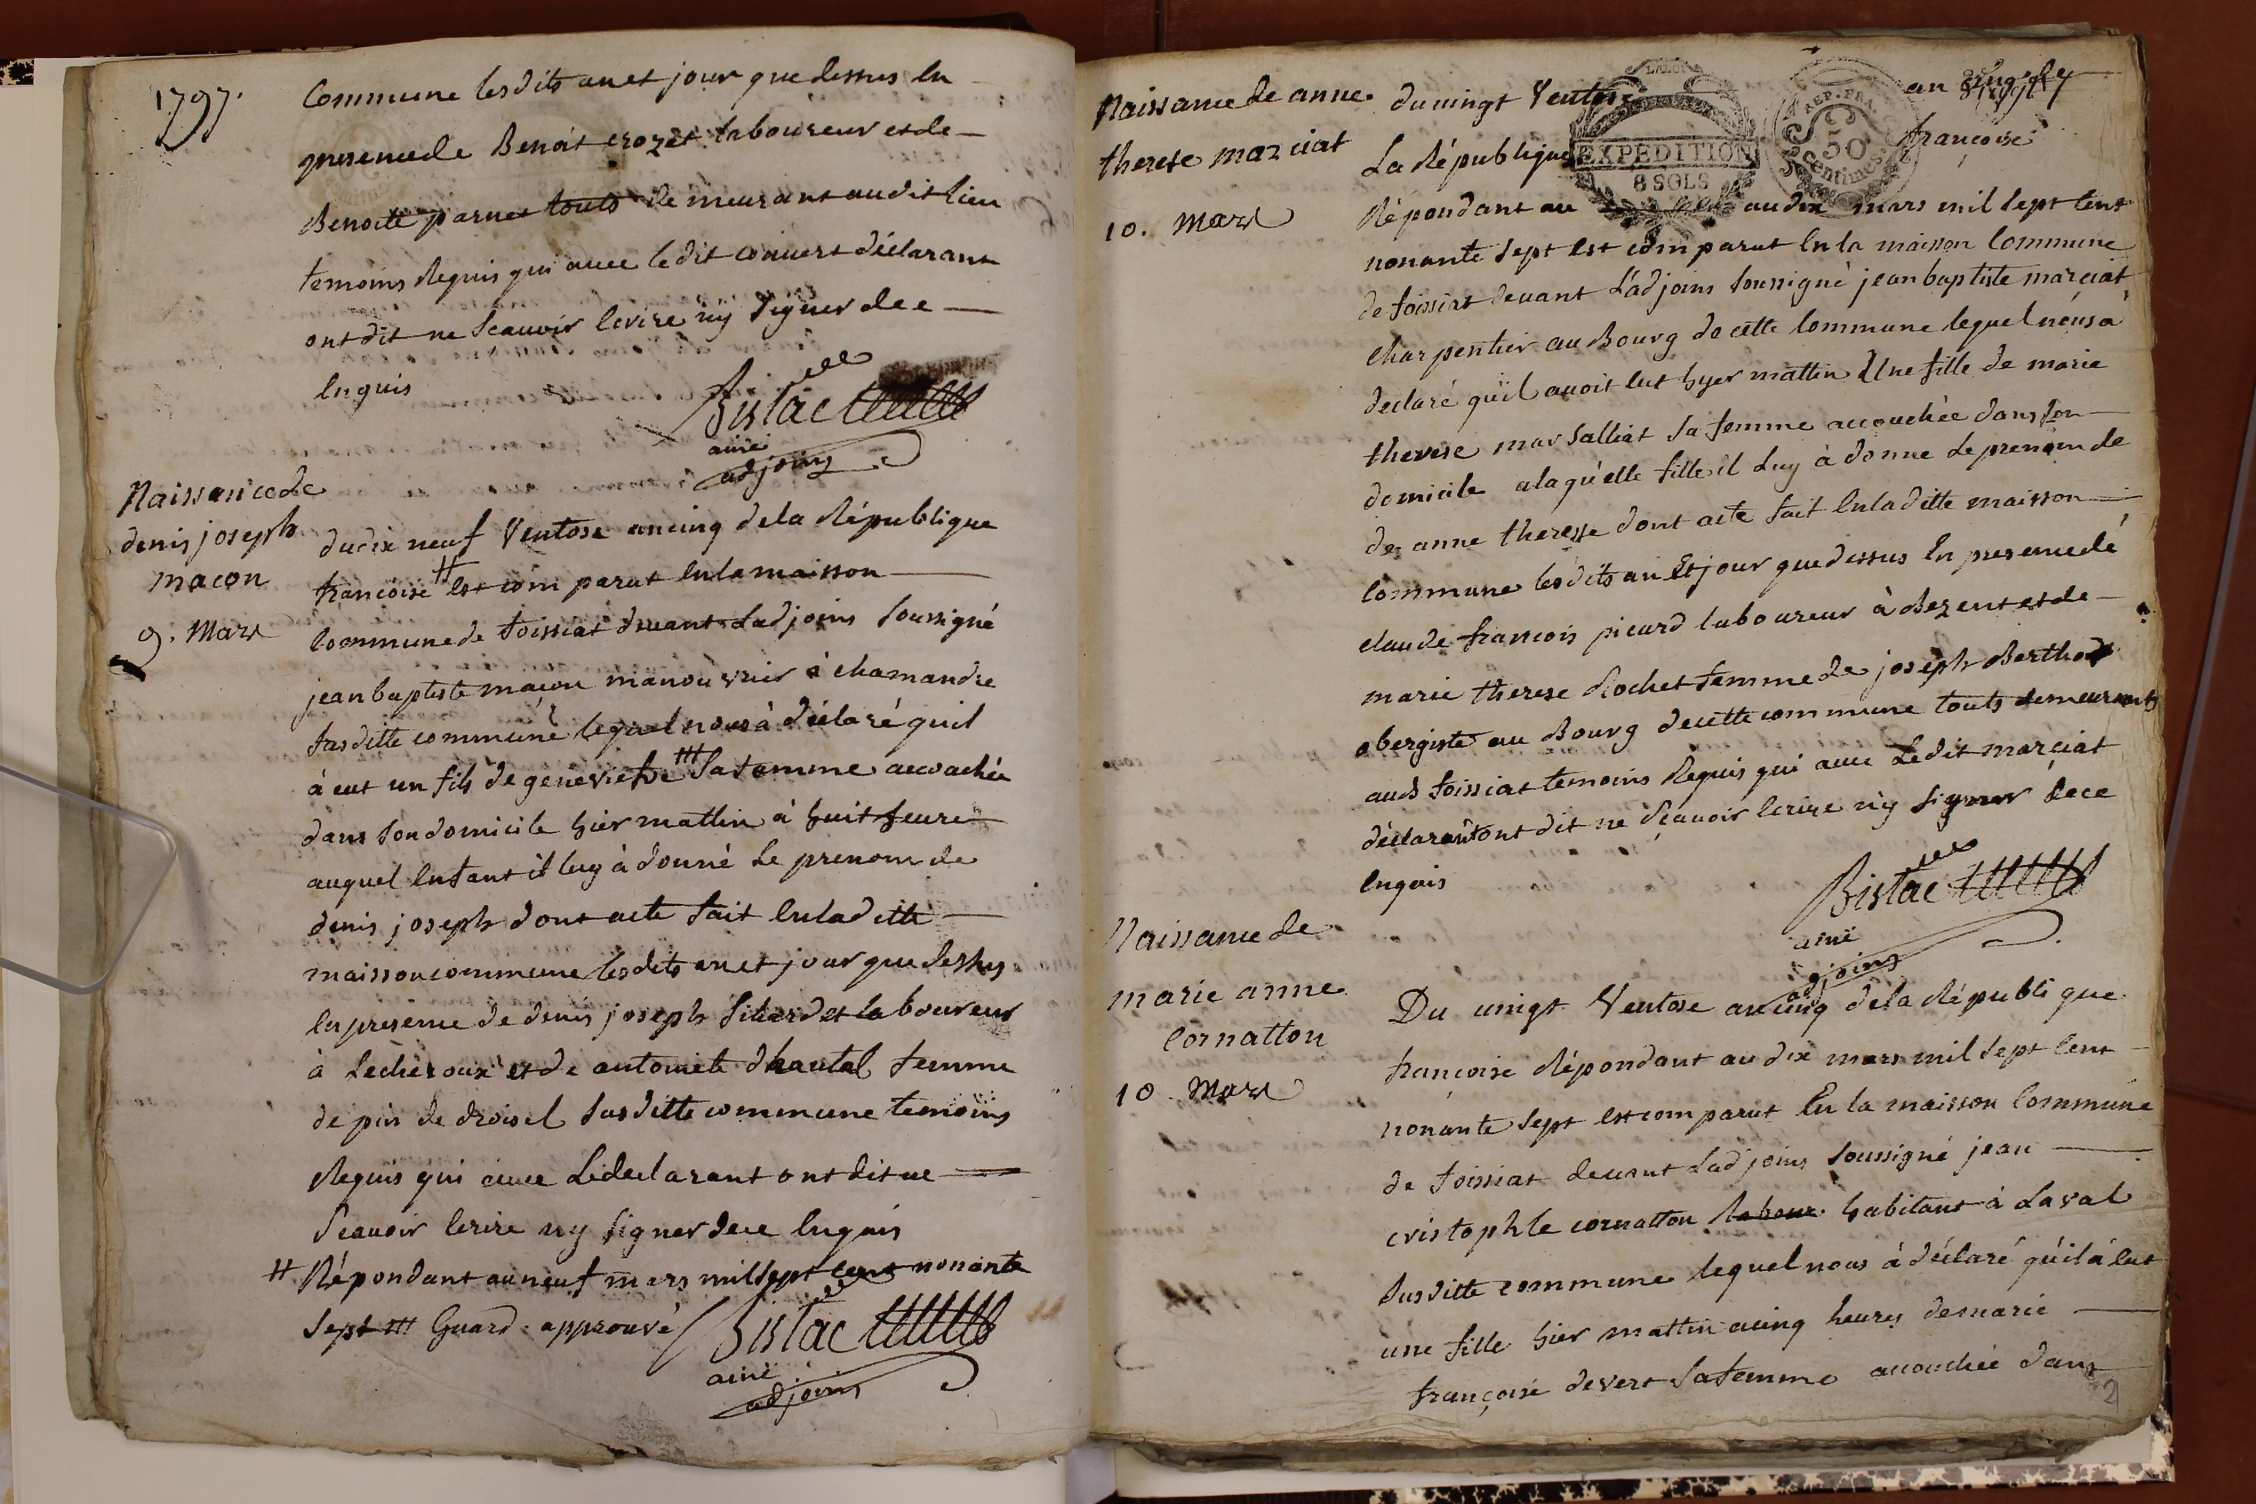 1797.
Commune lesdits an et jour que dessus En
presence de Benoit crozet laboureur et de
Benoite parnet touts demeurant audit lieu
temoins Requis qui avec ledit convert déclarant
ont dit ne Scavoir Ecrire ny Signer de ce
Enquis
Bistac
ainé
adjoins
Naissance de
denis joseph
macon
9. Mars
du dix neuf Ventose an cinq de la République
francoise # Est comparut En la maisson
Commune de foissiat devant Ladjoins Soussigné
jean baptiste maçon manouvrier à chamandre
susditte commune lequel nous à déclaré quil
à eut un fils de genevieve ## Sa femme accouchée
dans son domicile hier mattin à huit heure
auquel Enfant il luy à donné Le prenom de
denis joseph dont acte fait En la ditte
maisson commune lesdits an et jour que dessus
En presence de denis joseph laboureur
à Lecheroux et de antoinete femme
de pin de susditte commune temoins
Requis qui avec Le declarant ont dit ne
Scavoir Ecrire ny signer de ce Enquis
# Répondant au neuf mars mil sept cent nonante
Sept ## Guard. approuvé
Bistac
ainé
adjoins
Naissance de anne
therese marciat
10. Mars
du vingt Ventose an
La République françoise
EXPEDITION
8 SOLS
REP. FRA.
50
Centimes
Répondant au au dix mars mil sept Cent
nonante sept Est comparut En la maisson Commune
de foissiat devant L'adjoins Soussigné jean baptiste marciat
charpentier au Bourg de cette Commune lequel nous a
declaré qu'il avoit Eut hyer mattin Une fille de marie
therese marsalliat Sa femme accouchée dans son
domicile a laqu'elle fille il Luy à donne Le prenom de
de anne theresse dont acte fait En la ditte maisson
Commune lesdits an Et jour que dessus En presence de
claude francois picard laboureur à Bezent et de
marie therese Rochet femme de joseph Berthod
obergiste au Bourg de cette commune touts demeurants
aud foissiat temoins Requis qui avec Ledit marciat
déclarant ont dit ne sçavoir Ecrire n'y signer de ce
Enquis
Bistac
ainé
adjoins
Naissance de
marie anne
Cornatton
10. Mars
Du vingt Ventose an cinq de la République
francoise Répondant au dix mars mil sept Cent
nonante sept Est comparut En la maisson Commune
de foissiat devant Ladjoins Soussigné jean
cristophle cornatton labour. habitant à Laval
susditte commune lequel nous à déclaré qu'il à Eut
une fille hier mattin a cinq heures de marie
françoise devert Sa femme accouchée dans
2